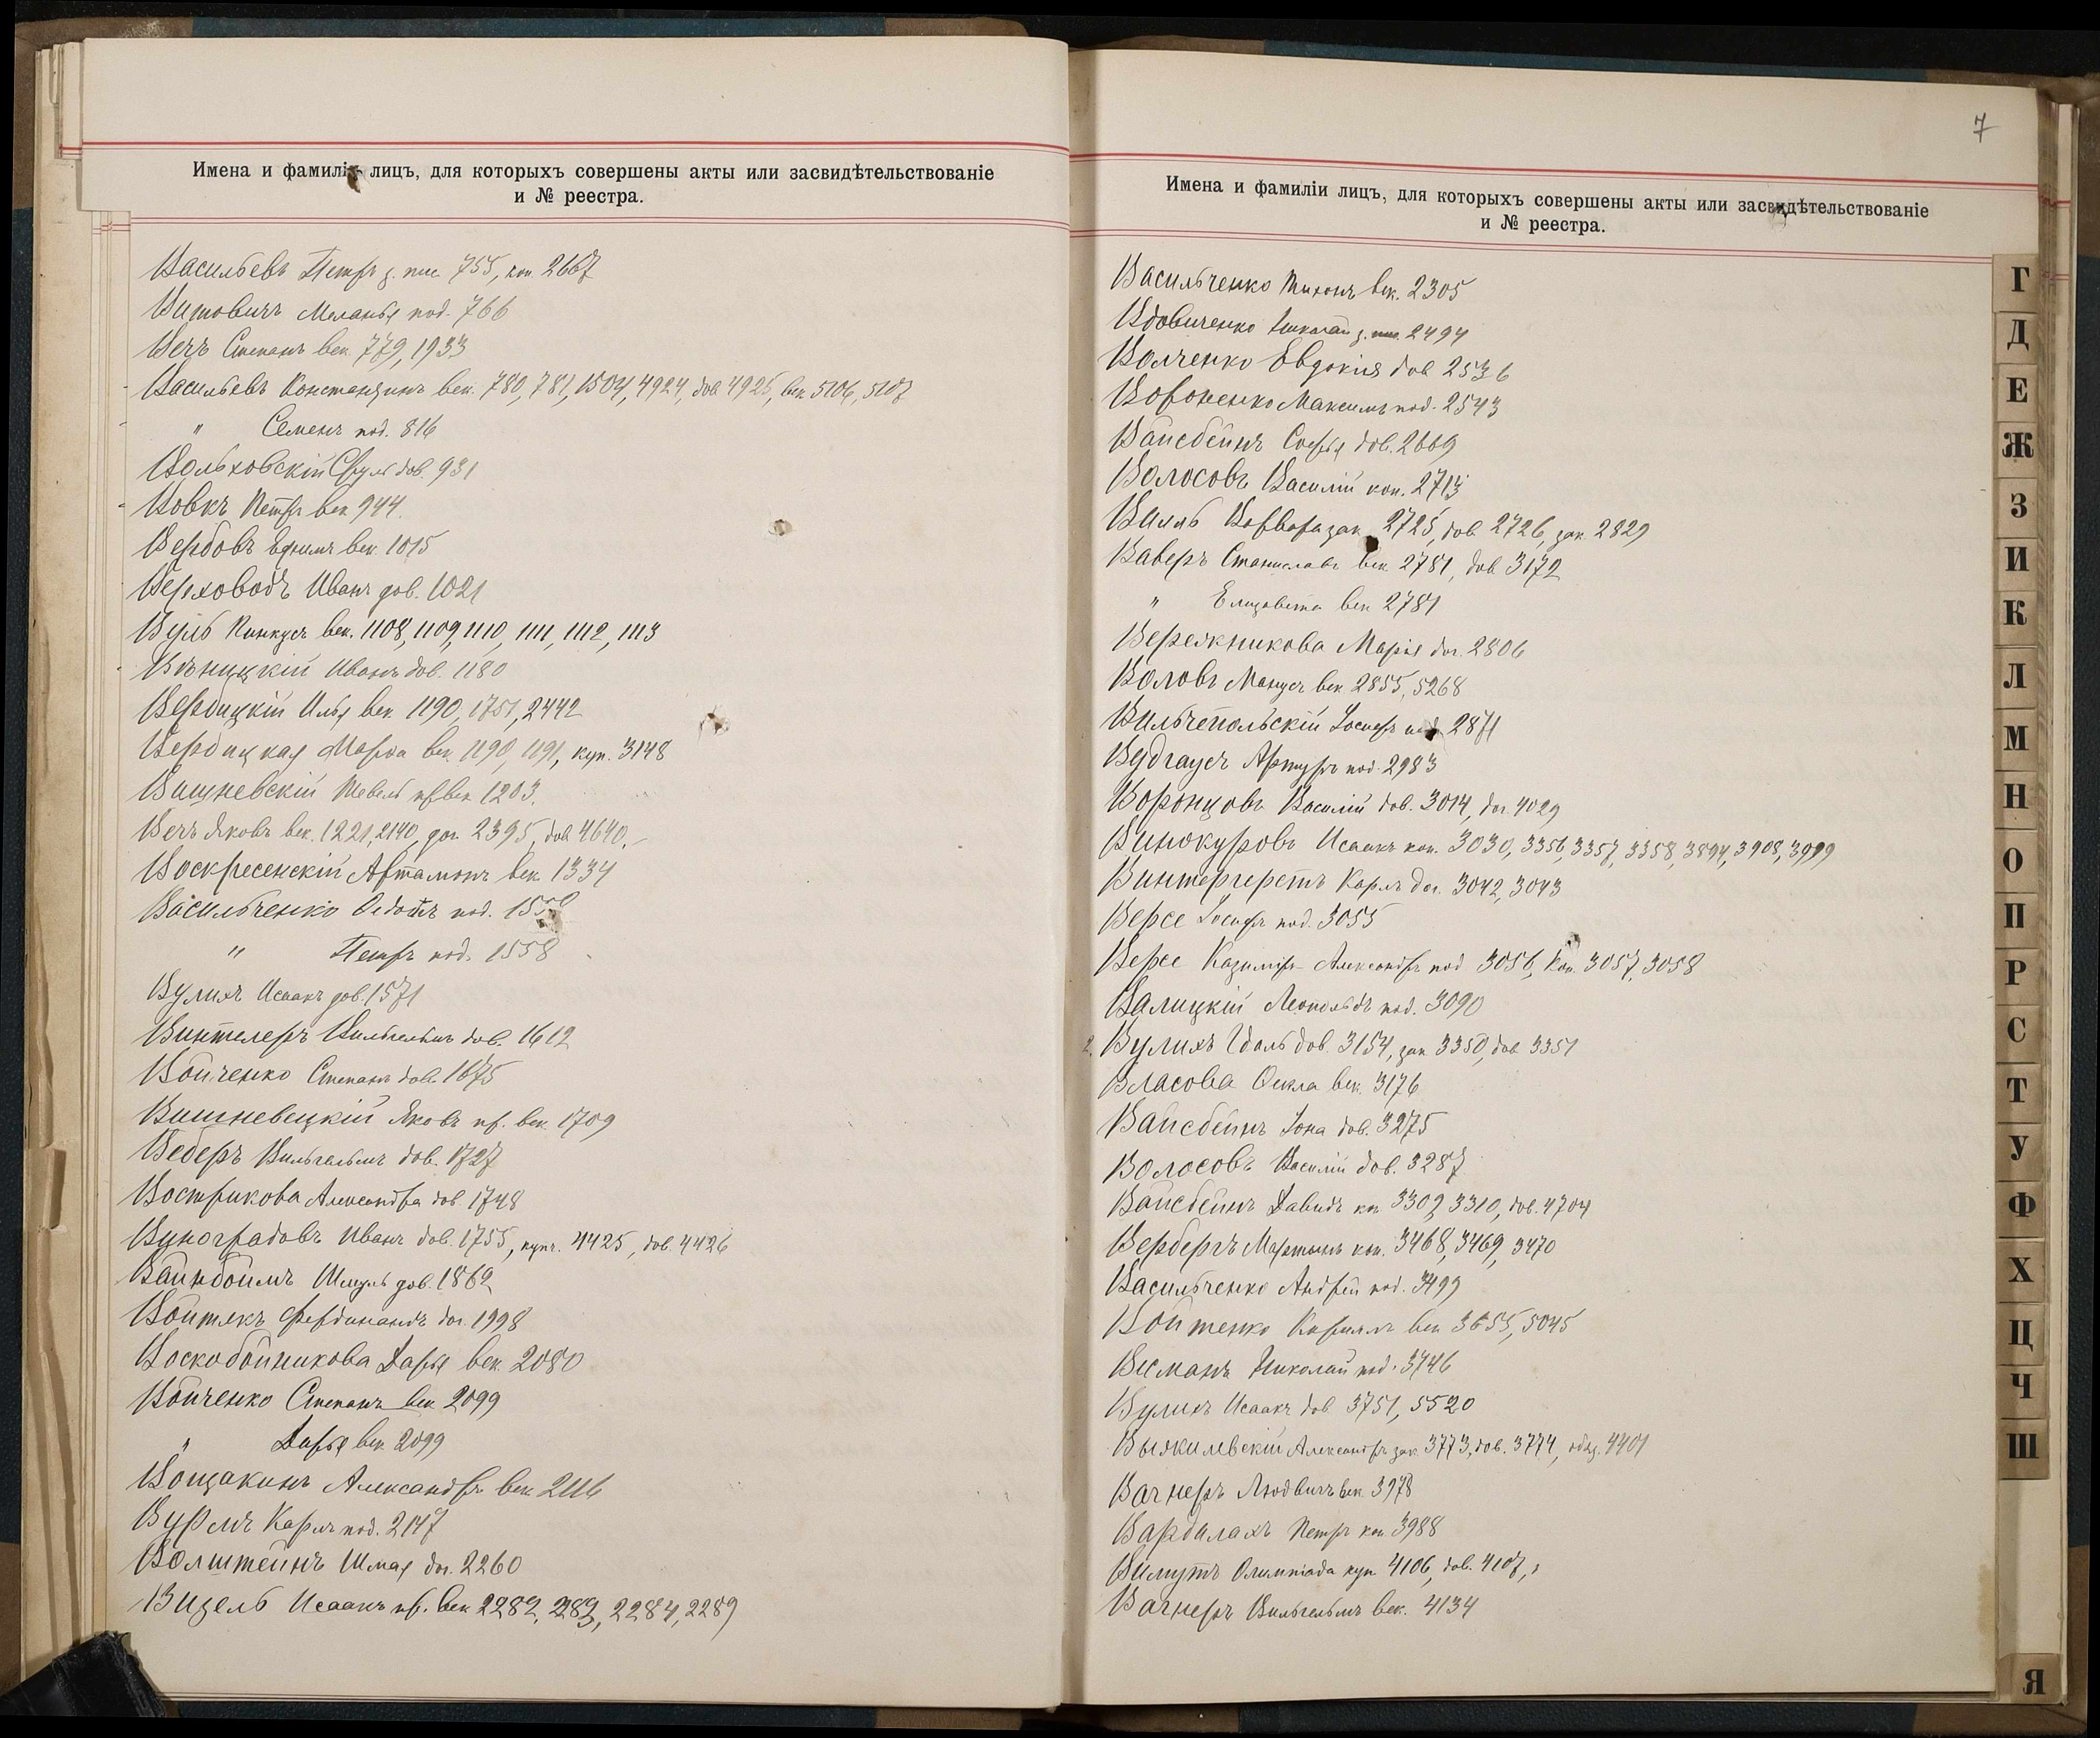 Имена и фамиліи лицъ, для которыхъ совершены акты или засвидѣтельствованіе
и № реестра.
Васильевъ Петръ д. пис 755, коп 2667
Витовичъ Меланья под. 766
Вечъ Степанъ век. 779, 1933
Васильевъ Константинъ век. 780, 781, 1504, 4924, дов 4925, век 5106, 5107
" Семенъ под. 816
Вольховскій Сруль дов. 931
Вовкъ Петръ век 944.
Вербовъ Ефимъ век. 1015
Верховодъ Иванъ дов. 1021
Вуль Пинкусъ век. 1108, 1109, 1110, 1111, 1112, 1113
Иванъ дов. 1180
Вербицкій Илья век 1190, 1751, 2442
Вербицкая Марѳа век. 1190, 1191, куп. 3148
Вишневскій Шевель пр век 1203.
Вечъ Яковъ век. 1221, 2140, дог. 2395, дов 4640.
Воскресенскій Автамонъ век. 1334
Васильченко Ѳедотъ под.
" Петръ под. 1558
Вулихъ Исаакъ дов. 1571
Винтелеръ Вильгельмъ дов. 1612
Войченко Степанъ дов. 1675
Вишневецкій Яковъ пр. век. 1709
Веберъ Вильгельмъ дов. 1727
Вострикова Александра дов. 1748
Виноградовъ Иванъ дов. 1755, купч. 4425, дов. 4426
Вайнбоймъ Шмуль дов. 1862
Войтякъ Фердинандъ дог. 1998
Воскобойникова Дарья век. 2080
Войченко Степанъ век 2099
" Дарья век 2099
Вощакинъ Александръ век 2116
Вурмъ Карлъ под. 2147
Волштейнъ Шмая дог. 2260
Вицель Исаакъ пр. век 2282, 2283, 2284, 2289
7
Имена и фамиліи лицъ, для которыхъ совершены акты или засвидѣтельствованіе
и № реестра.
Васильченко Тихонъ век. 2305
Вдовиченко Николай д. 2494
Волченко Евдокія дов 2536
Вороненко Максимъ под. 2543
Вайсбейнъ Софья дов. 2669
Волосовъ Василій коп. 2713
Вилль Варвара зак. 2725, дов 2726, зак. 2829
Ваверъ Станиславъ век 2781, дов 3172
" Елизавета век 2781
Вережникова Марія дог. 2806
Воловъ Манусъ век 2855, 5268
Вильчепольскій Іосифъ под 2871
Вудгаусъ Артуръ под. 2983
Воронцовъ Василій дов. 3014, дог 4029
Винокуровъ Исаакъ коп. 3030, 3356, 3357, 3358, 3894, 3908, 3999
Винтергерстъ Карлъ дог. 3042, 3043
Версе Іосифъ под. 3055
Версе Казиміръ-Александръ под 3056, коп. 3057, 3058
Валицкій Леопольдъ под. 3090
2. Вулихъ Идаль дов 3154, зак 3350, дов 3351
Власова Ѳекла век. 3176
Вайсбейнъ Іона дов. 3275
Волосовъ Василій дов. 3287
Вайсбейнъ Давидъ коп 3309, 3310, дов. 4704
Вербергъ Мартынъ коп. 3468, 3469, 3470
Васильченко Андрей под. 3499
Войтенко Кириллъ век 3655, 5045
Висманъ Николай под. 3746
Вулихъ Исаакъ дов. 3751, 5520
Александръ зак 3773, дов. 3774, обяз. 4401
Вагнеръ Людвигъ век 3978
Вардалахъ Петръ коп 3988
Вимутъ Олимпіада куп 4106, дов. 4107,
Вагнеръ Вильгельмъ век. 4134
Г
Д
Е
Ж
З
И
К
Л
М
Н
О
П
Р
С
Т
У
Ф
Х
Ц
Ч
Ш
Я